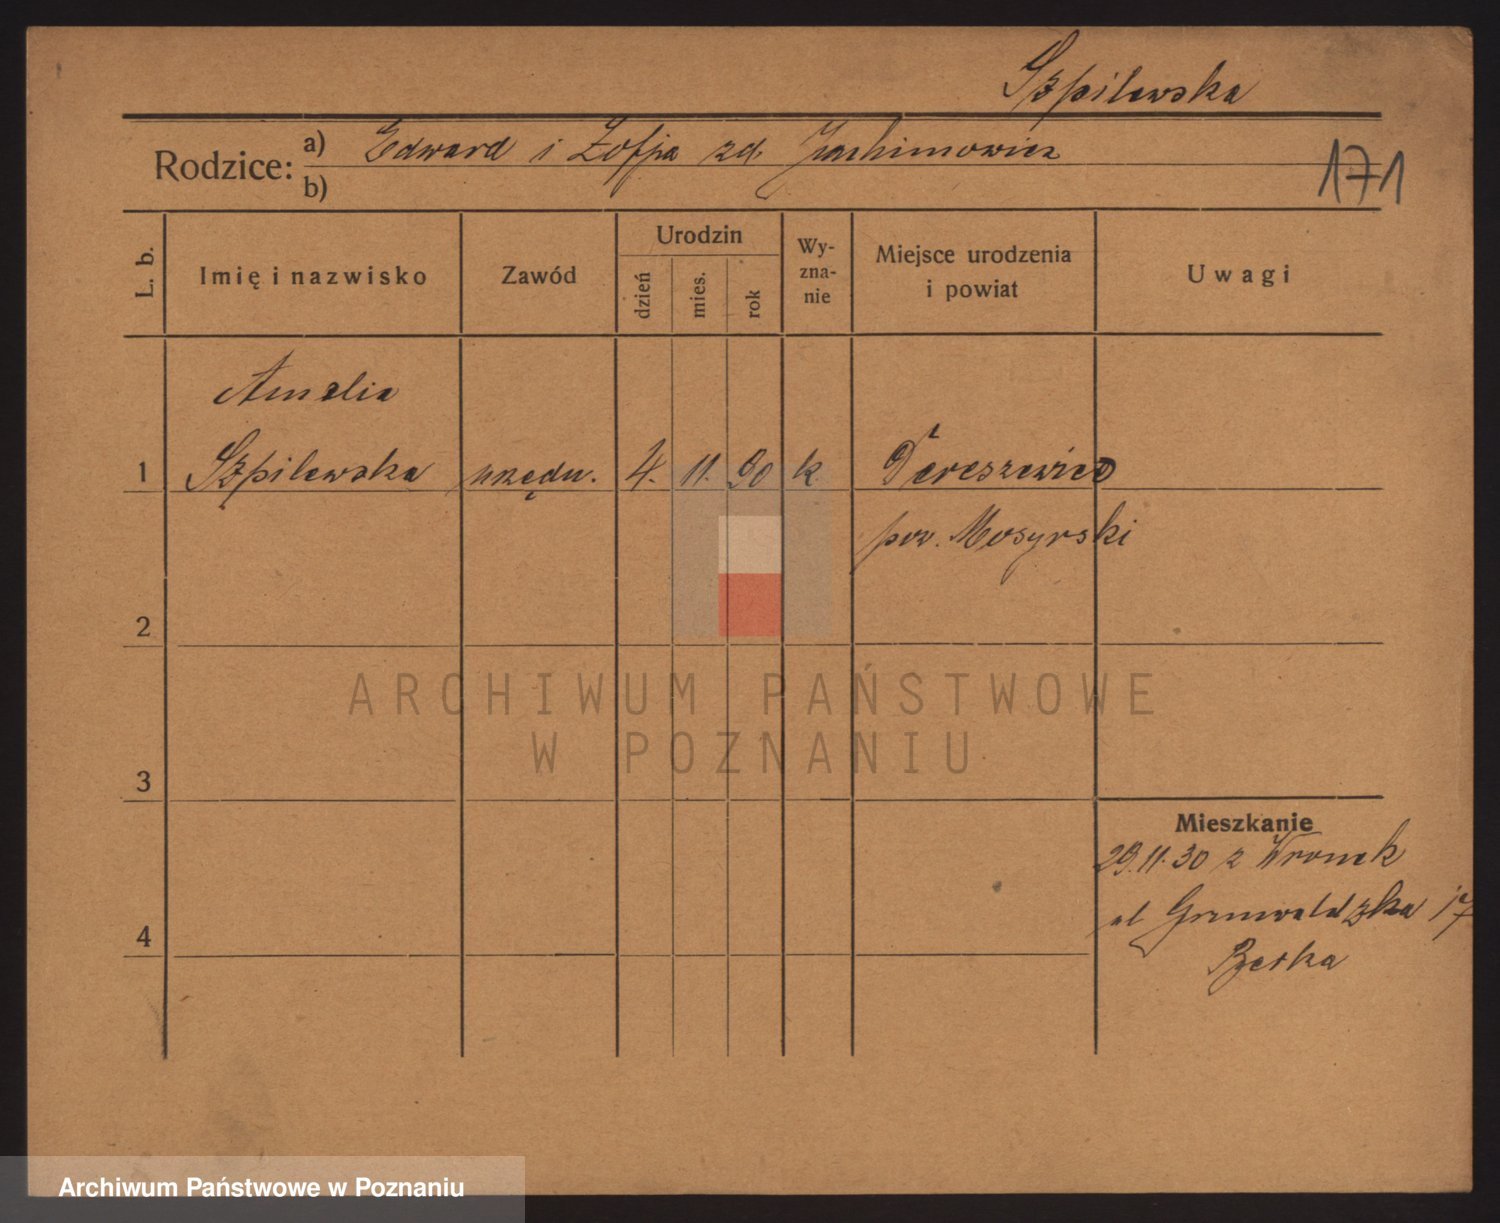 Szpilewska
Rodzice: a) Edward i Zofja zd. Jachimowicz
b)
171
L. b.
Imię i nazwisko
Zawód
Urodzin
dzień
mies.
rok
Wy-
zna-
nie
Miejsce urodzenia
i powiat
Uwagi
Amelia
1 Szpilewska urzędn. 4. 11. 90 k Tereszewice
pow. Mosyrski
2
3
4
Mieszkanie
29.11.30 z Wronek
ul Grunwaldzka 17
ARCHIWUM PAŃSTWOWE
W POZNANIU
Archiwum Państwowe w Poznaniu